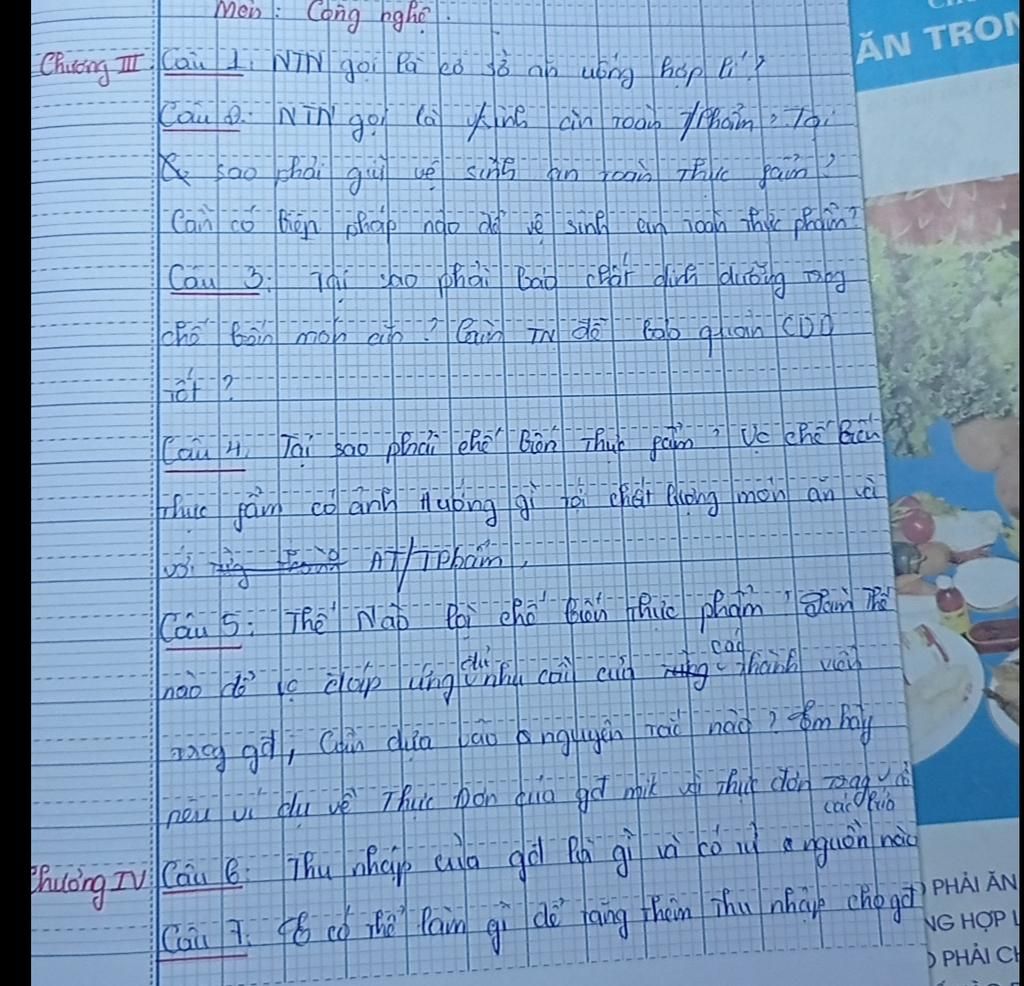 Môn : Công nghệ.
Chương III Câu 1. NTN gọi là cơ sở ăn uống hợp lí ?
Câu 2. NTN gọi là sinh an toàn T/Phẩm ? Tại
sao phải giữ vệ sinh an toàn thực fẩm ?
Cần có biện pháp nào để vệ sinh an toàn thực phẩm ?
Câu 3 : Tại sao phải bảo chất dinh dưỡng trong
chế biến món ăn ? Cần TN để bảo quản CDD
tốt ?
Câu 4. Tại sao phải chế biến thực fẩm ? Vc chế biến
thực fẩm có ảnh hưởng gì tới chất lượng món ăn và
với AT/TPhẩm.
Câu 5 : Thế Nào là chế biến thực phẩm ? Làm Thế
nào để tc đáp ứng đủ nhu cầu của các thành viên
trong gđ, Cần dựa vào nguyên tắc nào ? Em hãy
nêu ví dụ về Thực Đơn của gđ mik và thực đơn
các bữa
Chương IV Câu 6 : Thu nhập của gđ là gì và có từ nguồn nào
Câu 7. có thể làm gì để tăng thêm thu nhập cho gđ
ĂN TRON
PHẢI ĂN
NG HỢP L
PHẢI CH